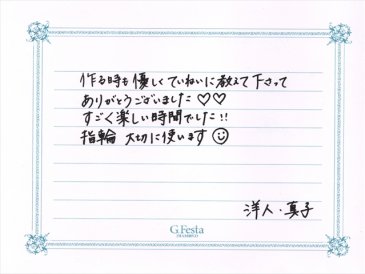 作る時も優しくていねいに教えて下さって
ありがとうございました♡♡
すごく楽しい時間でした!!
指輪 大切に使います☺
洋人・真子
G.Festa